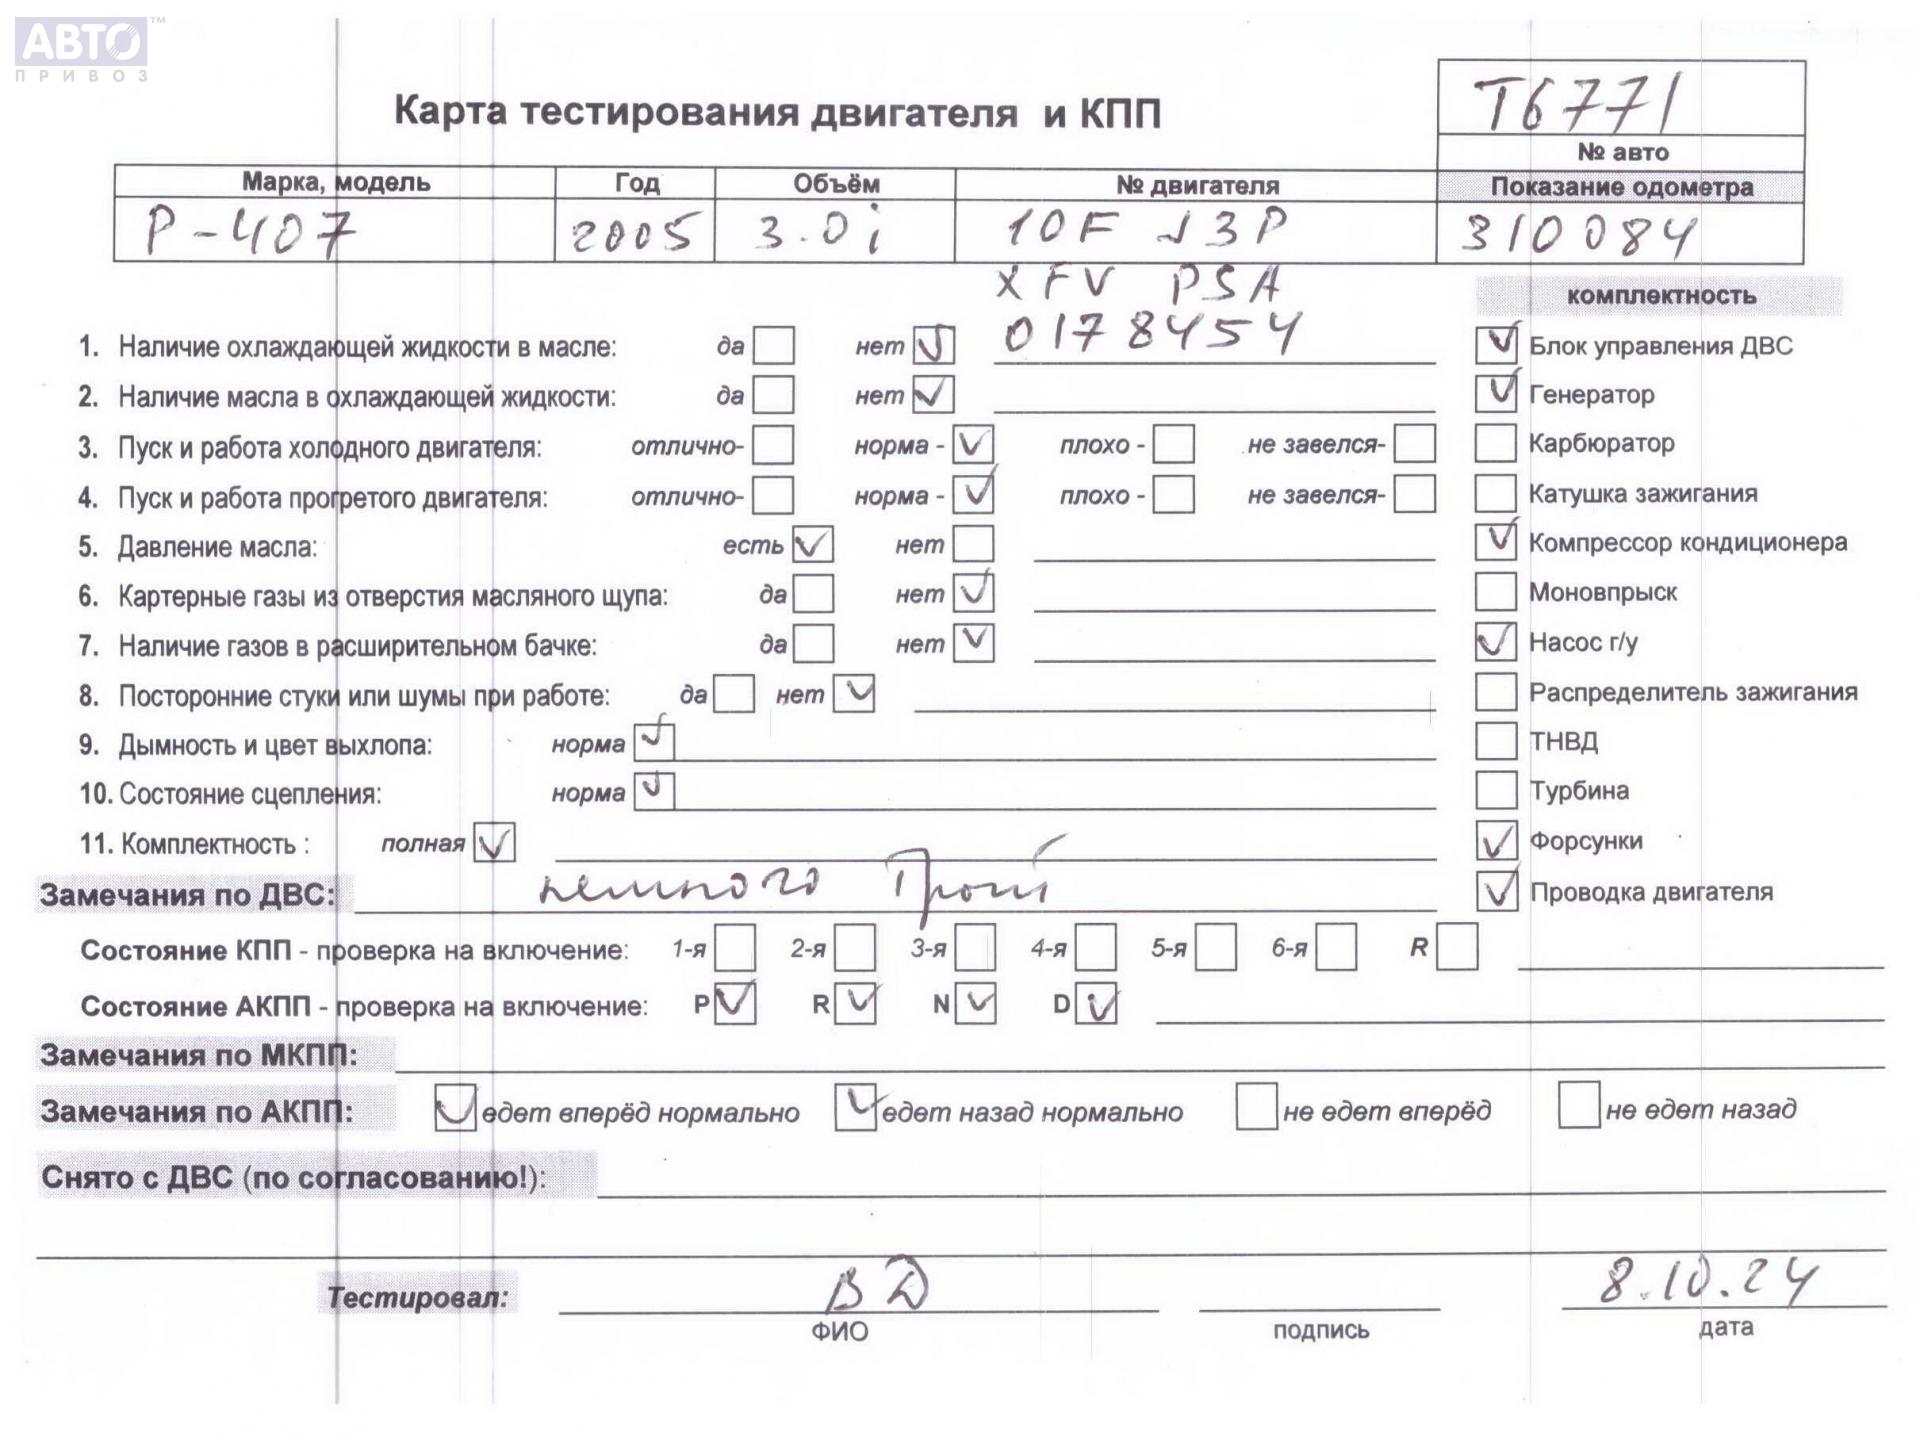 АВТО™
ПРИВОЗ
Карта тестирования двигателя и КПП
Т6771
№ авто
Марка, модель Год Объём № двигателя Показание одометра
Р-407 2005 3.0i 10F J3P 310084
XFV PSA
0178454
комплектность
1. Наличие охлаждающей жидкости в масле: да нет Блок управления ДВС
2. Наличие масла в охлаждающей жидкости: да нет Генератор
3. Пуск и работа холодного двигателя: отлично- норма - плохо - не завелся- Карбюратор
4. Пуск и работа прогретого двигателя: отлично- норма - плохо - не завелся- Катушка зажигания
5. Давление масла: есть нет Компрессор кондиционера
6. Картерные газы из отверстия масляного щупа: да нет Моновпрыск
7. Наличие газов в расширительном бачке: да нет Насос г/у
8. Посторонние стуки или шумы при работе: да нет Распределитель зажигания
9. Дымность и цвет выхлопа: норма ТНВД
10. Состояние сцепления: норма Турбина
11. Комплектность : полная Форсунки
Замечания по ДВС: немного Троит Проводка двигателя
Состояние КПП - проверка на включение: 1-я 2-я 3-я 4-я 5-я 6-я R
Состояние АКПП - проверка на включение: P R N D
Замечания по МКПП:
Замечания по АКПП: едет вперёд нормально едет назад нормально не едет вперёд не едет назад
Снято с ДВС (по согласованию!):
Тестировал: ВД 8.10.24
ФИО подпись дата